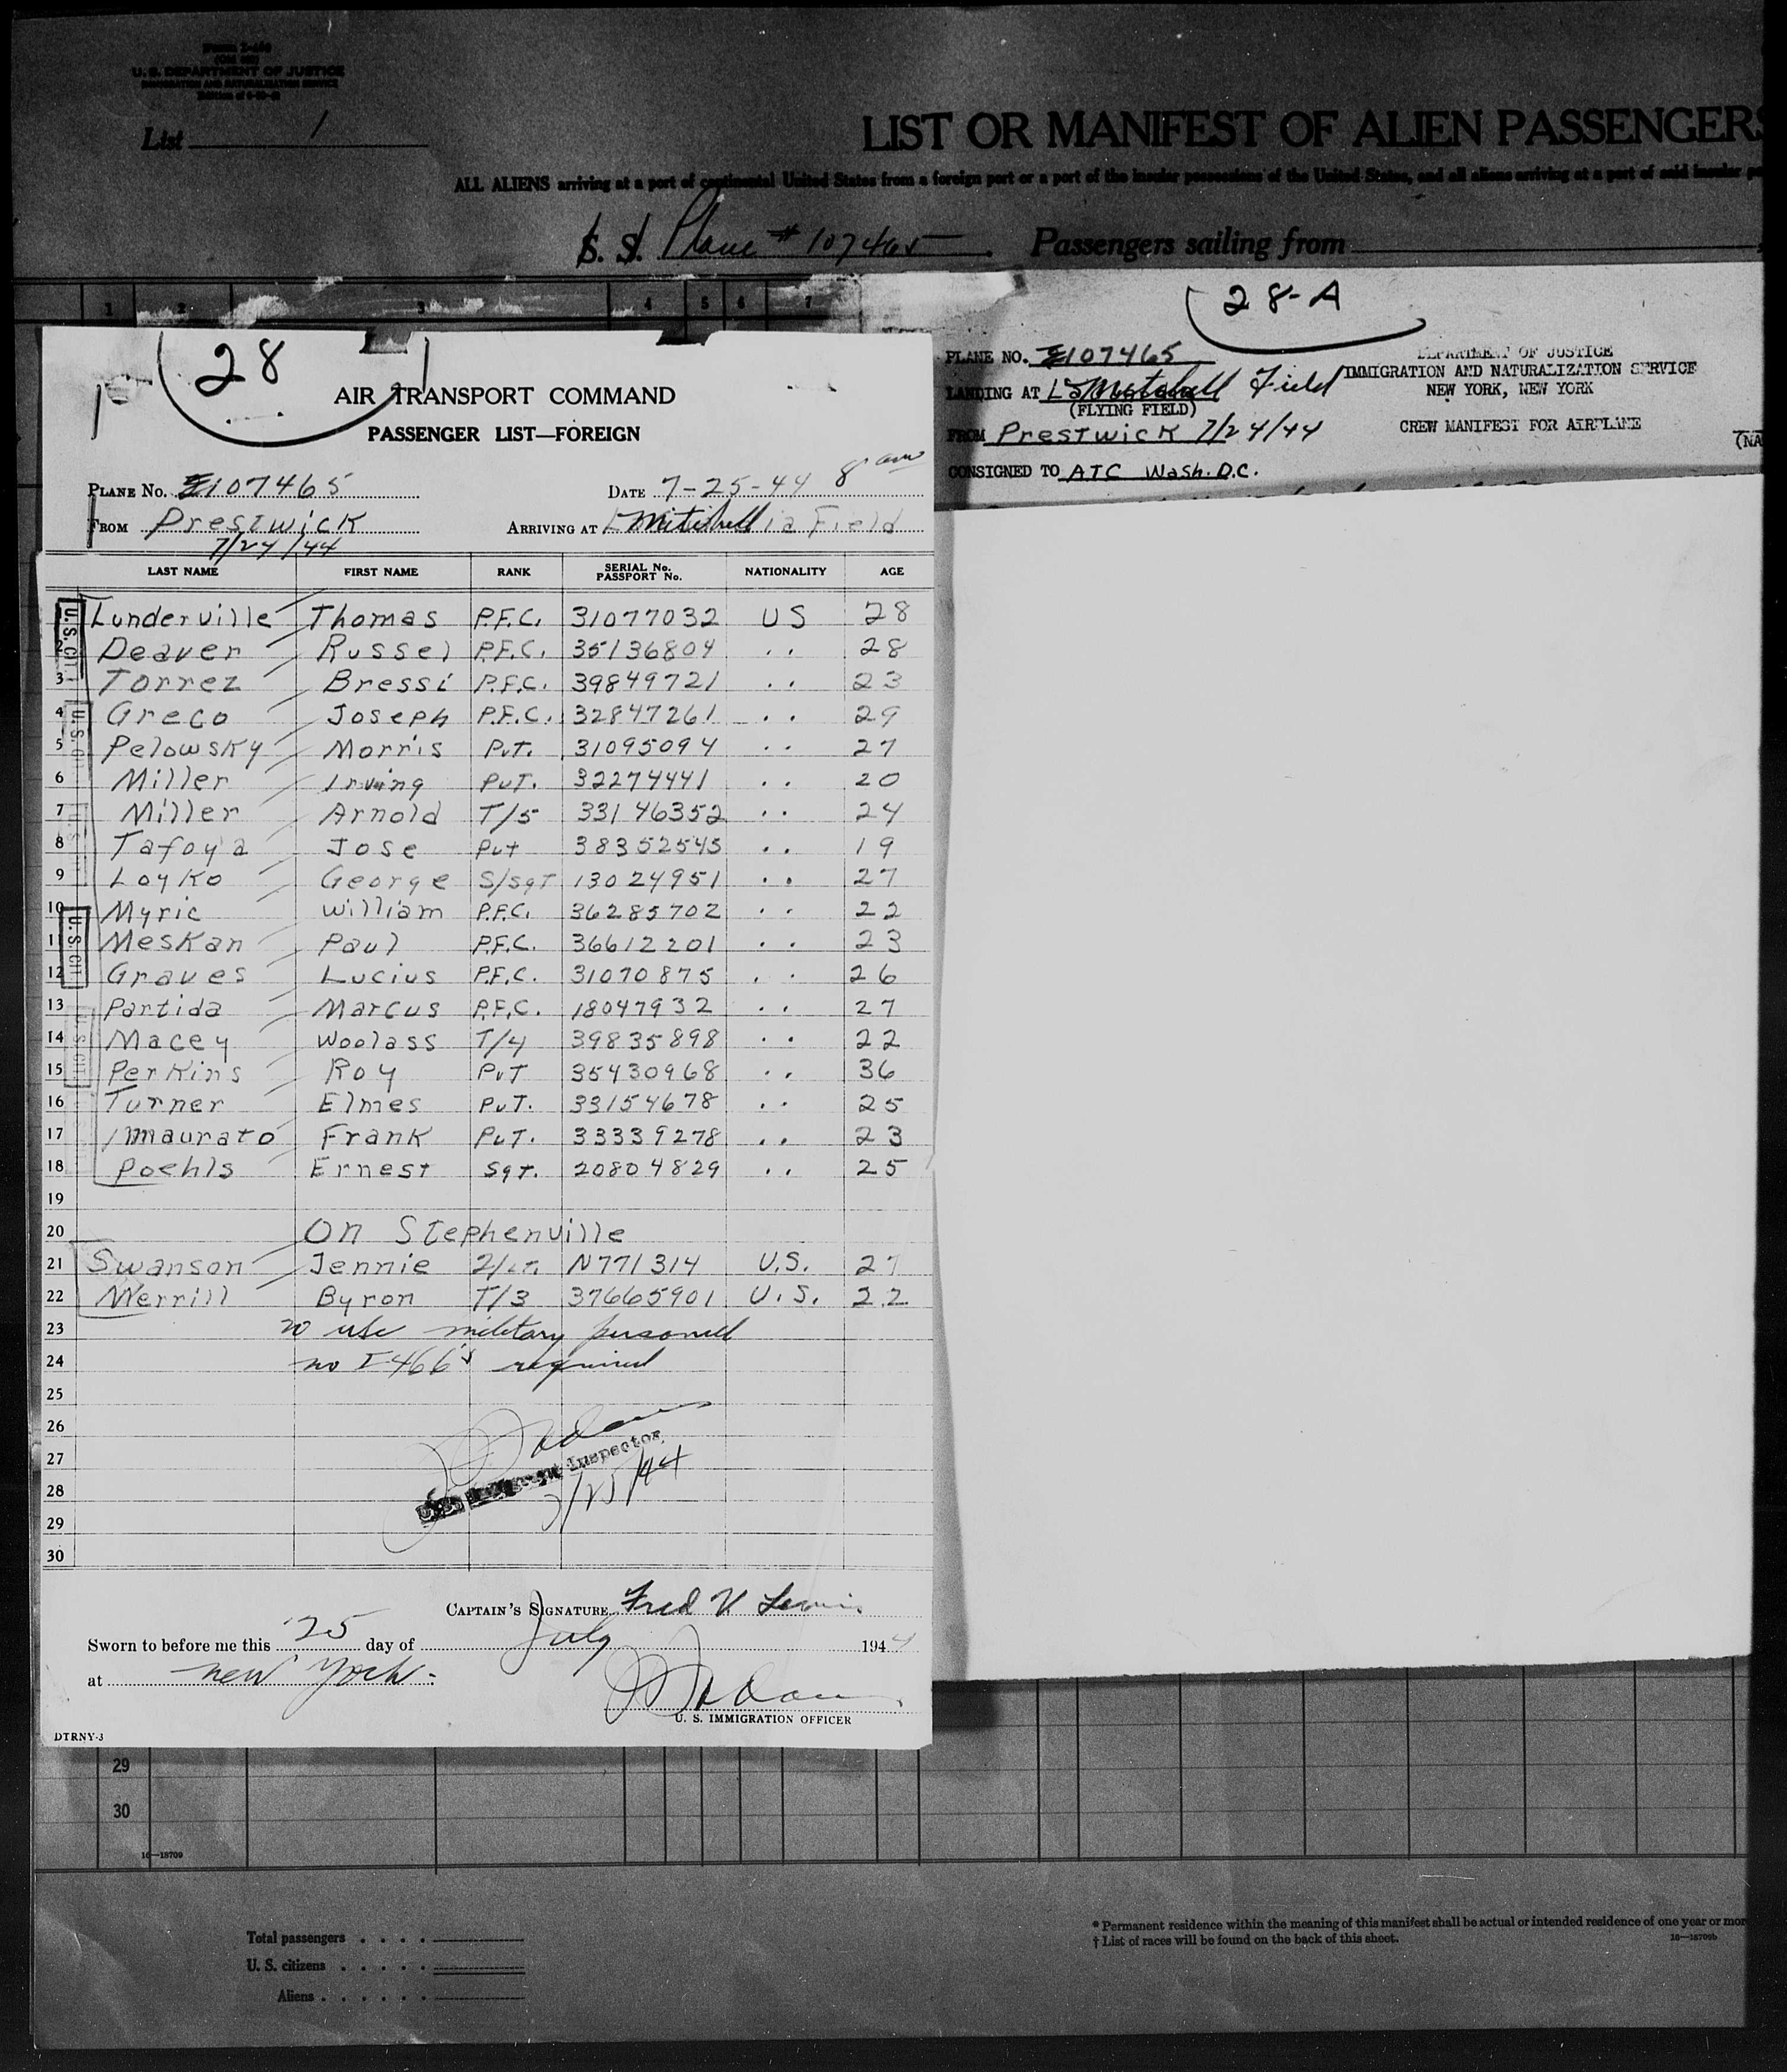 Form I-466
U. S. DEPARTMENT OF JUSTICE
IMMIGRATION AND NATURALIZATION SERVICE
List 1
LIST OR MANIFEST OF ALIEN PASSENGERS
ALL ALIENS arriving at a port of continental United States from a foreign port or a port of the insular possessions of the United States, and all aliens arriving at a port of said insular
S. S. Plane # 107465 Passengers sailing from
1 2 3 4 5 6 7
28
AIR TRANSPORT COMMAND
PASSENGER LIST—FOREIGN
PLANE No. 107465 DATE 7-25-44 8 am
FROM Prestwick ARRIVING AT Mitchell Field
7/24/44
LAST NAME FIRST NAME RANK SERIAL No. PASSPORT No. NATIONALITY AGE
1 Lunderville Thomas P.F.C. 31077032 US 28
2 Deaver Russel P.F.C. 35136804 .. 28
3 Torrez Bressi P.F.C. 39849721 .. 23
4 Greco Joseph P.F.C. 32847261 .. 29
5 Pelowsky Morris PvT. 31095094 .. 27
6 Miller Irving PvT. 32274441 .. 20
7 Miller Arnold T/5 33146352 .. 24
8 Tafoya Jose Pvt 38352545 .. 19
9 Loyko George S/sgT 13024951 .. 27
10 Myric William P.F.C. 36285702 .. 22
11 Meskan Paul P.F.C. 36612201 .. 23
12 Graves Lucius P.F.C. 31070875 .. 26
13 Partida Marcus P.F.C. 18047932 .. 27
14 Macey Woolass T/4 39835898 .. 22
15 Perkins Roy PvT 35430968 .. 36
16 Turner Elmes PvT. 33154678 .. 25
17 Imaurato Frank PvT. 33339278 .. 23
18 Poehls Ernest Sgt. 20804829 .. 25
19
20 On Stephenville
21 Swanson Jennie 2/LT. N771314 U.S. 27
22 Merrill Byron T/3 37665901 U.S. 22
23 20 usc military personell
24 no I-466's required
25
26
27
28
29
30
Inspector
7/25/44
U.S. CIT.
U.S. CIT.
U.S. CIT.
U.S. CIT.
CAPTAIN'S SIGNATURE Fred V. Lewis
Sworn to before me this 25 day of July 1944
at new York.
U. S. IMMIGRATION OFFICER
DTRNY-3
28-A
PLANE NO. 107465
LANDING AT Mitchell Field
(FLYING FIELD)
FROM Prestwick 7/24/44
CONSIGNED TO ATC Wash. D.C.
DEPARTMENT OF JUSTICE
IMMIGRATION AND NATURALIZATION SERVICE
NEW YORK, NEW YORK
CREW MANIFEST FOR AIRPLANE
(NA
29
30
16—18709
Total passengers . . . .
U. S. citizens . . . . .
Aliens . . . . . .
* Permanent residence within the meaning of this manifest shall be actual or intended residence of one year or mor
† List of races will be found on the back of this sheet.
16—18709b